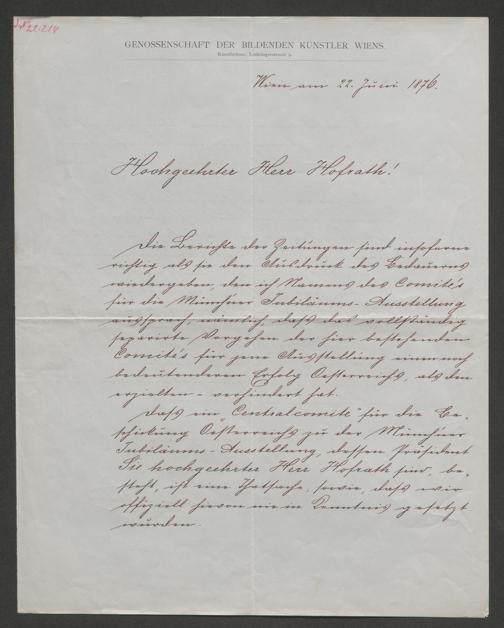 22.214
GENOSSENSCHAFT DER BILDENDEN KÜNSTLER WIENS.
Künstlerhaus, Lothringerstrasse 9.
Wien am 22. Juni 1876.
Hochgeehrter Herr Hofrath!
Die Berichte der Zeitungen sind insoferne
richtig als sie den Ausdruck des Bedauerns
wiedergeben, den ich Namens des Comité's
für die Münchner Jubiläums-Ausstellung
aussprach, nämlich, dass das vollständig
separirte Vorgehen der hier bestehenden
Comité's für jene Ausstellung einen noch
bedeutenderen Erfolg Oesterreichs, als den
erzielten - verhindert hat.
Dass ein "Centralcomité" für die Be-
schickung Oesterreichs zu der Münchner
Jubiläums-Ausstellung, dessen Präsident
Sie hochgeehrter Herr Hofrath sind, be-
steht, ist eine Thatsache, sowie, dass wir
offiziell hievon nie in Kenntnis gesetzt
wurden.